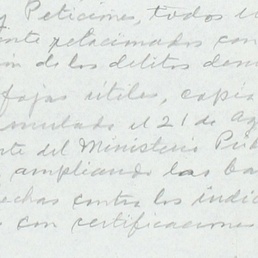 y Peticiones, todos
ente relacionados con
de los delitos
fojas útiles, copia
mulado el 21 de Ag
te del Ministerio Púb
ampliando las ba
echas contra los indic
con certificaciones